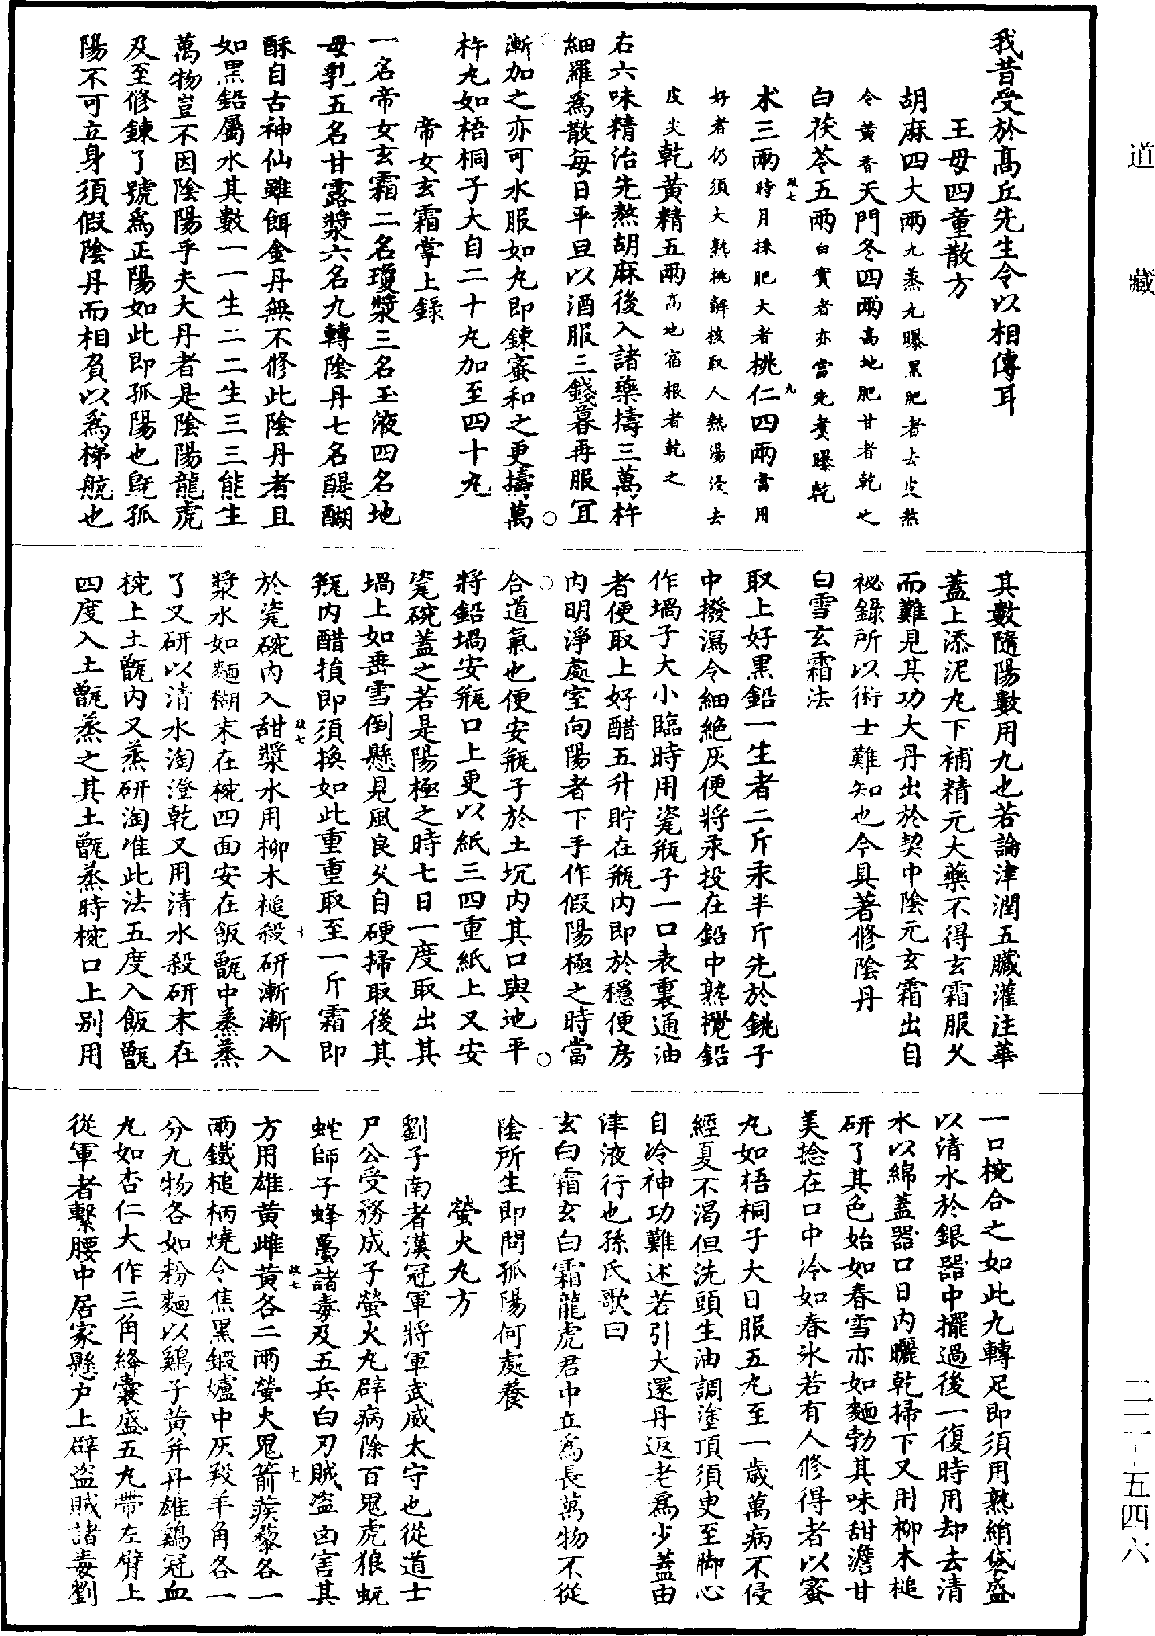 道藏
我昔受於高丘先生令以相傳耳
王母四童散方
胡麻四大兩九蒸九曝黑肥者去皮熬
令黃香天門冬四兩高地肥甘者乾之
白茯苓五兩白實者亦當先煑曝乾
朮三兩時月採肥大者桃仁四兩當用
好者仍須大熟桃解核取人熱湯浸去
皮尖乾黃精五兩高地宿根者乾之
右六味精治先熬胡麻後入諸藥擣三萬杵
細羅爲散每日平旦以酒服三錢暮再服冝
漸加之亦可水服如丸即鍊蜜和之更擣萬
杵丸如梧桐子大自二十丸加至四十丸
帝女玄霜掌上錄
一名帝女玄霜二名瓊漿三名玉液四名地
母乳五名甘露漿六名九轉陰丹七名醍醐
酥自古神仙雖餌金丹無不修此陰丹者且
如黑鉛屬水其數一一生二二生三三能生
萬物豈不因陰陽乎夫大丹者是陰陽龍虎
及至修鍊了號爲正陽如此即孤陽也旣孤
陽不可立身須假陰丹而相負以爲梯航也
其數隨陽數用九也若論津潤五臟灌注華
蓋上添泥丸下補精元大藥不得玄霜服乆
而難見其功大丹出於契中陰元玄霜出自
祕錄所以術士難知也今具著修陰丹
白雪玄霜法
取上好黑鉛一生者二斤汞半斤先於銚子
中撥濕令細絶灰便將汞投在鉛中熟攪鉛
作堝子大小臨時用瓷瓶子一口表裏通油
者便取上好醋五升貯在瓶内即於穩便房
内明淨處室向陽者下手作假陽極之時當
合道氣也便安瓶子於土坑内其口與地平
將鉛堝安瓶口上更以紙三四重紙上又安
瓷碗蓋之若是陽極之時七日一度取出其
堝上如垂雪倒懸見風良乆自硬掃取後其
瓶内醋損即須換如此重重取至一斤霜即
於瓷碗内入甜漿水用柳木槌殺研漸漸入
漿水如麵糊末在椀四面安在飯甑中蒸蒸
了又研以清水淘澄乾又用清水殺研末在
椀上土甑内又蒸研淘准此法五度入飯甑
四度入土甑蒸之其土甑蒸時椀口上别用
一口椀合之如此九轉足即須用熟絹袋盛
以清水於銀器中擺過後一復時用却去清
水以綿蓋器口日内曬乾掃下又用柳木槌
研了其色始如春雪亦如麵勃其味甜澹甘
美捻在口中冷如春氷若有人修得者以蜜
丸如梧桐子大日服五丸至一歲萬病不侵
經夏不渴但洗頭生油調塗頂須臾至脚心
自冷神功難述若引大還丹返老爲少蓋由
津液行也孫氏歌曰
玄白霜玄白霜龍虎君中立爲長萬物不從
陰所生即問孤陽何處養
螢火丸方
劉子南者漢冠軍將軍武威太守也從道士
尸公受務成子螢火丸辟病除百鬼虎狼蚖
蛇師子蜂蠆諸毒及五兵白刃賊盜凶害其
方用雄黃雌黃各二兩螢火鬼箭蒺藜各一
兩鐵槌柄燒令焦黑鍜爐中灰羖羊角各一
分九物各如粉麵以鷄子黃并丹雄鷄冠血
丸如杏仁大作三角絳囊盛五丸帶左臂上
從軍者繫腰中居家懸户上辟盜賊諸毒劉
二十五四六